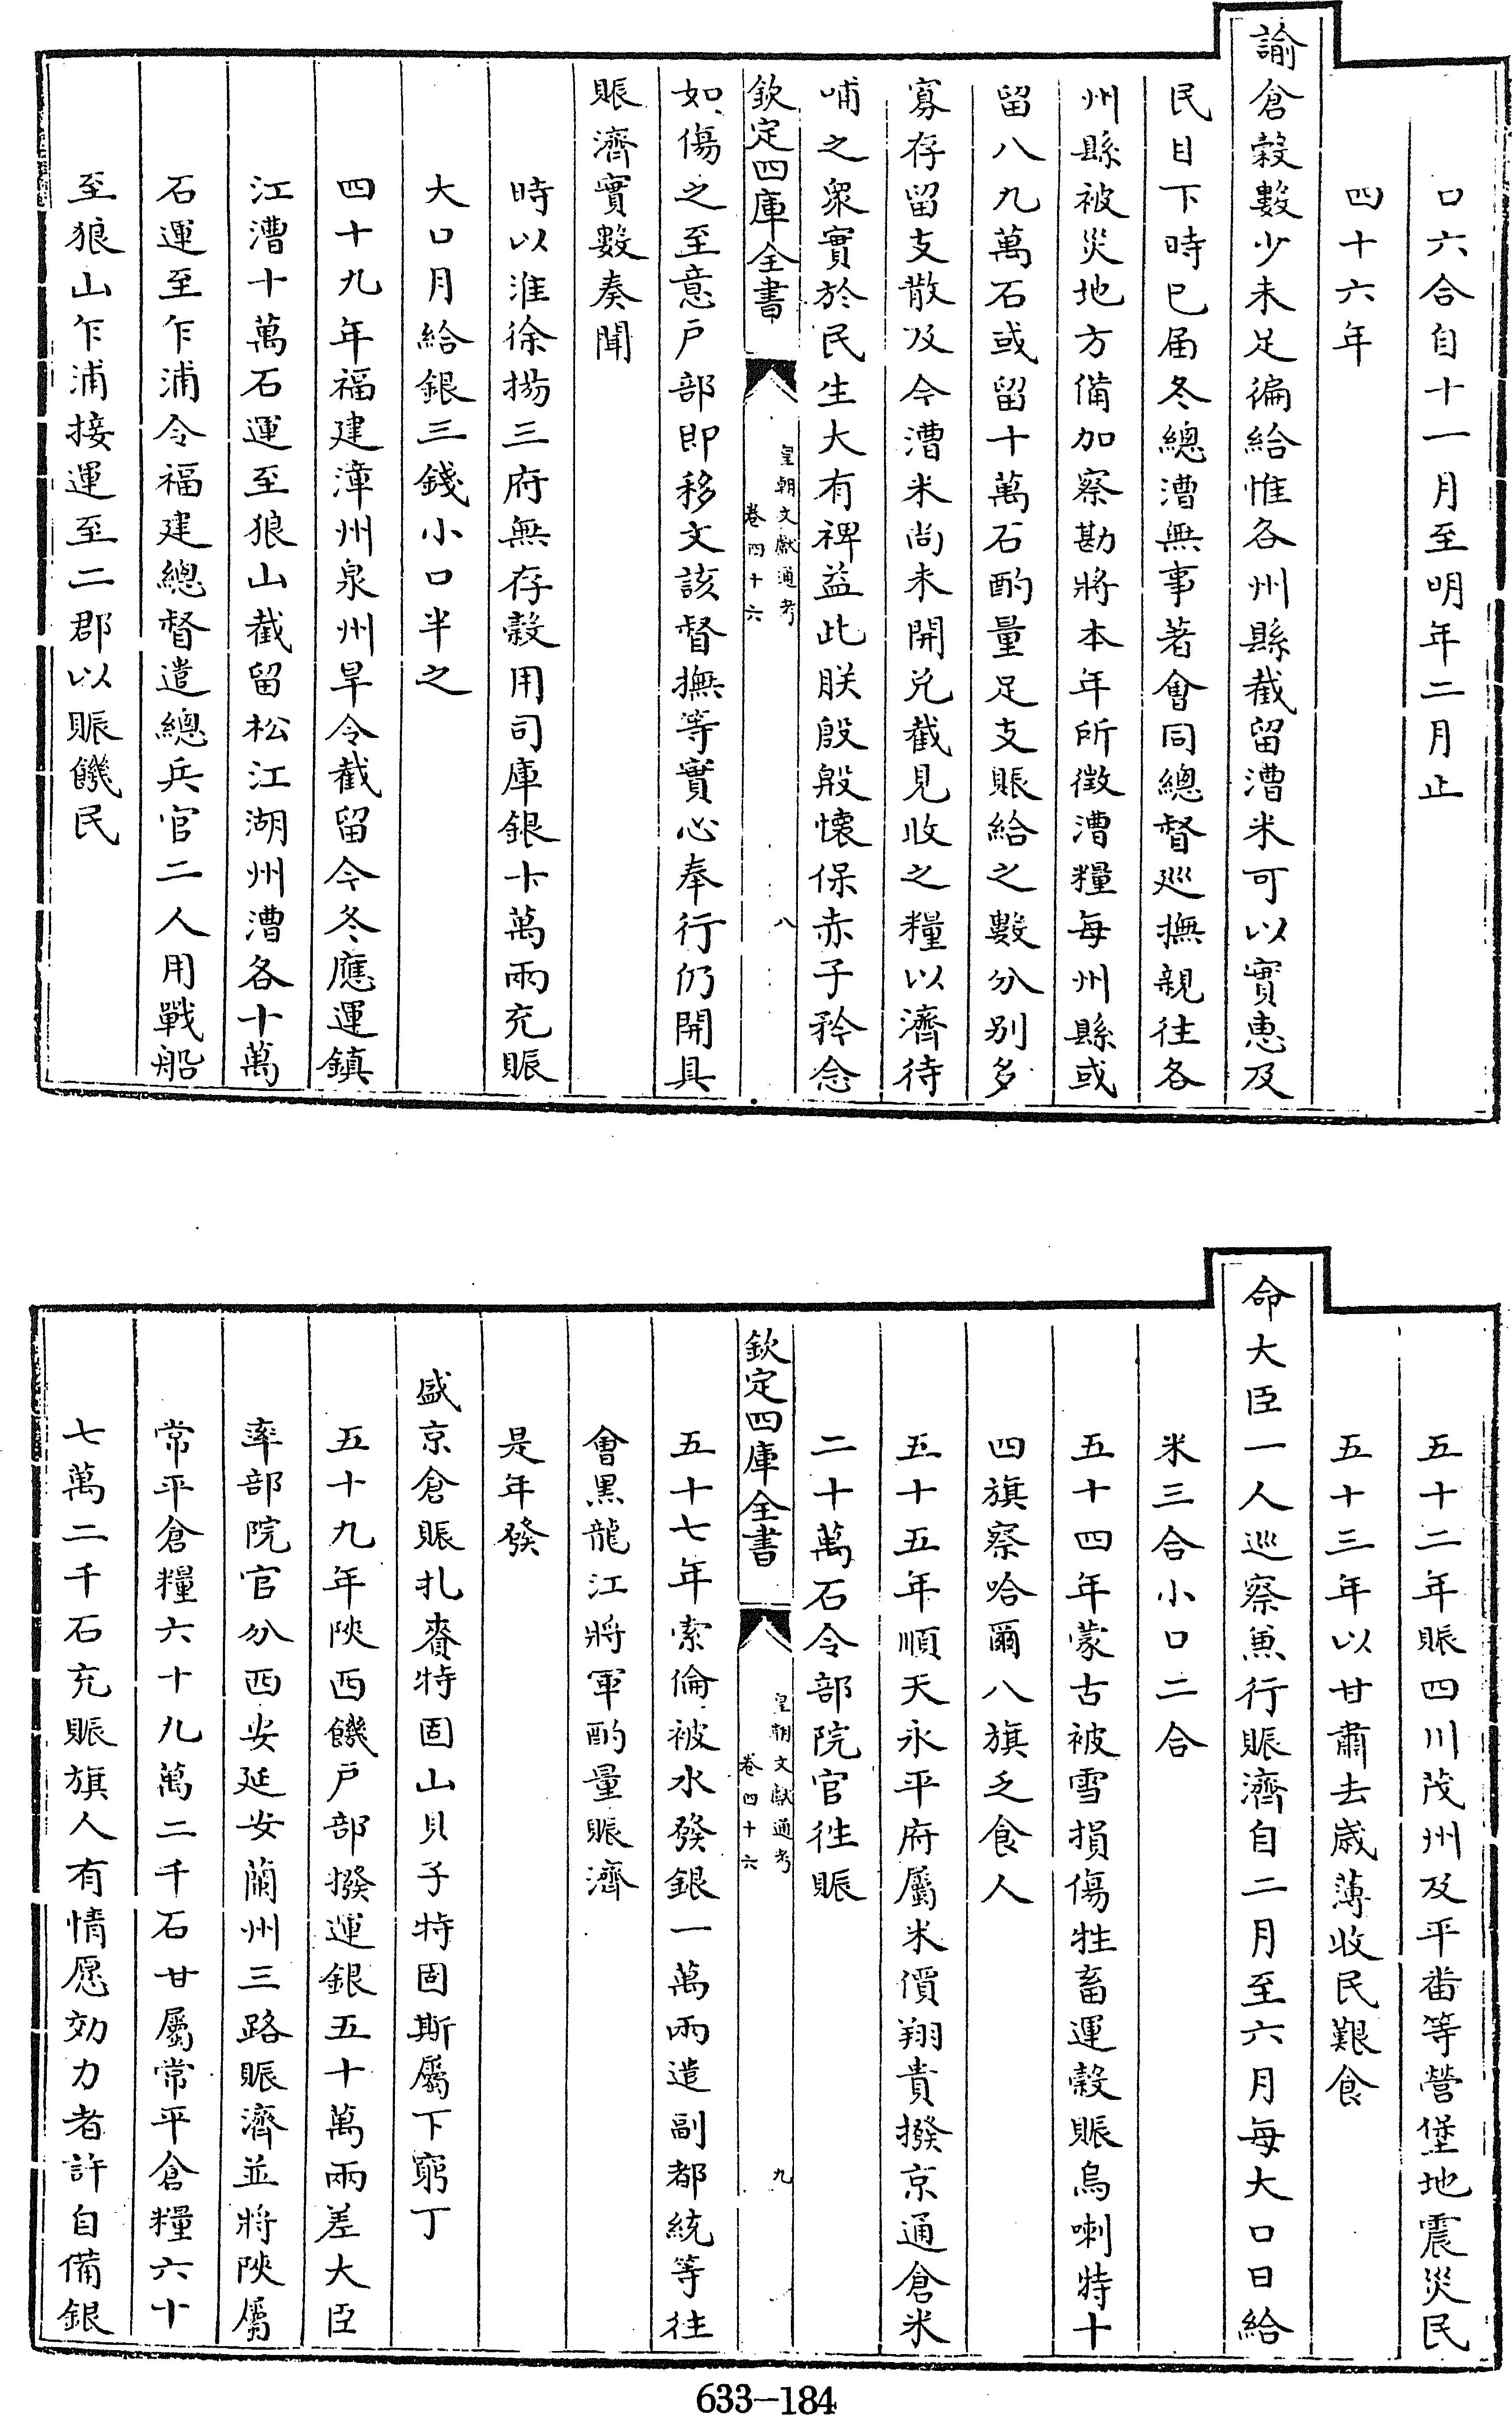 口六合自十一月至明年二月止
四十六年
諭倉穀數少未足徧給惟各州縣截留漕米可以實惠及
民目下時已届冬總漕無事著會同總督巡撫親往各
州縣被災地方備加察勘將本年所徴漕糧每州縣或
留八九萬石或留十萬石酌量足支賑給之數分别多
寡存留支散及今漕米尚未開兑截見收之糧以濟待
哺之衆實於民生大有裨益此朕殷殷懷保赤子矜念
欽定四庫全書
皇朝文獻通考
卷四十六
八
如傷之至意户部即移文該督撫等實心奉行仍開具
賑濟實數奏聞
時以淮徐揚三府無存穀用司庫銀十萬兩充賑
大口月給銀三錢小口半之
四十九年福建漳州泉州旱令截留今冬應運鎮
江漕十萬石運至狼山截留松江湖州漕各十萬
石運至乍浦令福建總督遣總兵官二人用戰船
至狼山乍浦接運至二郡以賑饑民
五十二年賑四川茂州及平番等營堡地震災民
五十三年以甘肅去歲薄收民艱食
命大臣一人巡察兼行賑濟自二月至六月每大口日給
米三合小口二合
五十四年蒙古被雪損傷牲畜運穀賑烏喇特十
四旗察哈爾八旗乏食人
五十五年順天永平府屬米價翔貴撥京通倉米
二十萬石令部院官往賑
欽定四庫全書
皇朝文獻通考
卷四十六
九
五十七年索倫被水發銀一萬兩遣副都統等往
會黑龍江將軍酌量賑濟
是年發
盛京倉賑扎賚特固山貝子特固斯屬下窮丁
五十九年陜西饑户部撥運銀五十萬兩差大臣
率部院官分西安延安蘭州三路賑濟並將陜屬
常平倉糧六十九萬二千石甘屬常平倉糧六十
七萬二千石充賑旗人有情愿効力者許自備銀
633-184